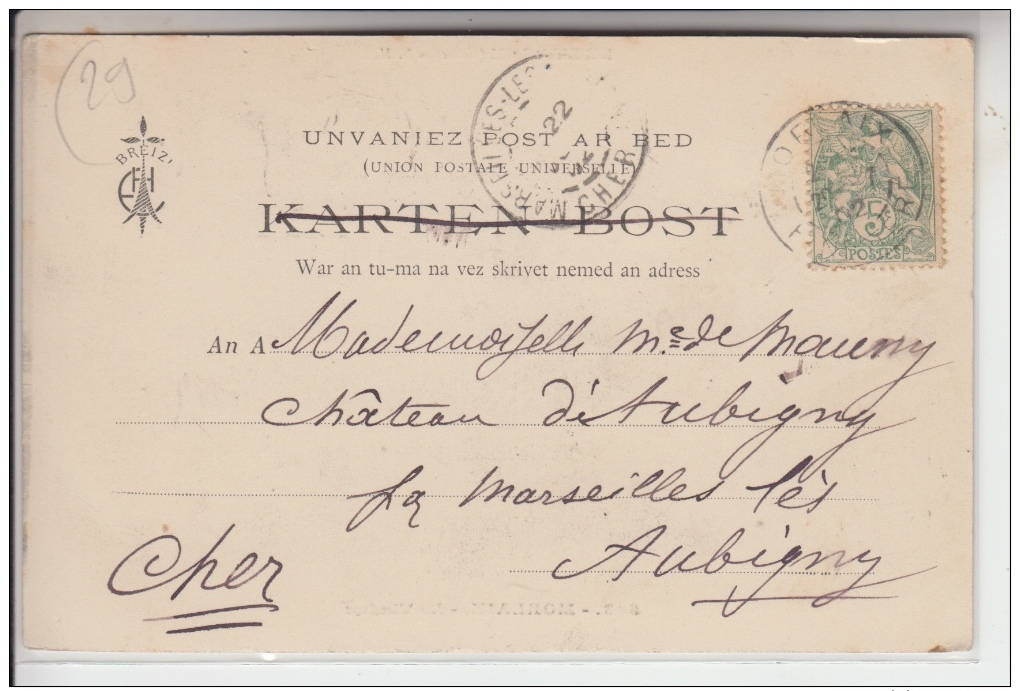 29
BREIZ
UNVANIEZ POST AR BED
(UNION POSTALE UNIVERSELLE)
KARTEN BOST
War an tu-ma na vez skrivet nemed an adress
MARSEILLES-LES
22
CHER
5c
POSTES
An A Mademoiselle M. de Mauny
Château d'Aubigny
par Marseilles lès
Aubigny
Cher